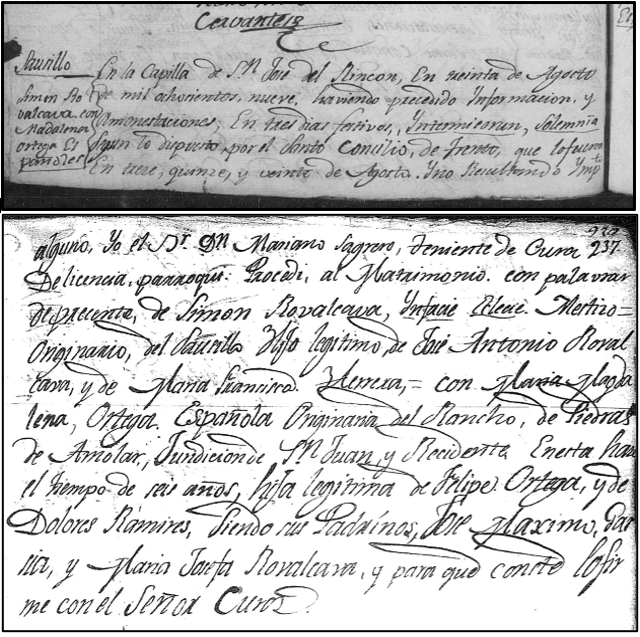 Cervantes
Sausillo
Simon Ro
valcava, con
Madalena
ortega Es
pañoles
En la Capilla de Sn. José del Rincon, En veinte de Agosto
de mil ahosientos, nueve, haviendo precedido Informacion, y
amonestaciones, En tres dias festivos, Yntermisarun, Solemnia
Segun lo dispuesto, por el Santo Concilio, de Trento, que lo fueron
En trese, quinze, y veinte de Agosto. Y no Resultando Imp
237
alguno, Yo el Dr. Dn Mariano Sagrero, teniente de Cura
De licencia, parroqui. Procedi, al Matrimonio. con palavras
de precente, de Simon Rovalcava, Ynfacie Eclecie. Mestizo=
Originario, del Sausillo Hijo legitimo, de José Antonio Roval
cava, y de Maria Francisca. Herrera,= con Maria Magda
lena, Ortega. Española Originaria del Rancho, de Piedras
de Amolar, Jurdicion de Sn Juan, y Recidente Enesta hase
el tiempo de seis años, hija legitima de Felipe. Ortega, y de
Dolores Ramires, Siendo sus Padrinos, José Maximo, Gar
cia, y Maria Josefa Rovalcava, y para que conste lo fir
me con el Señor Cura.